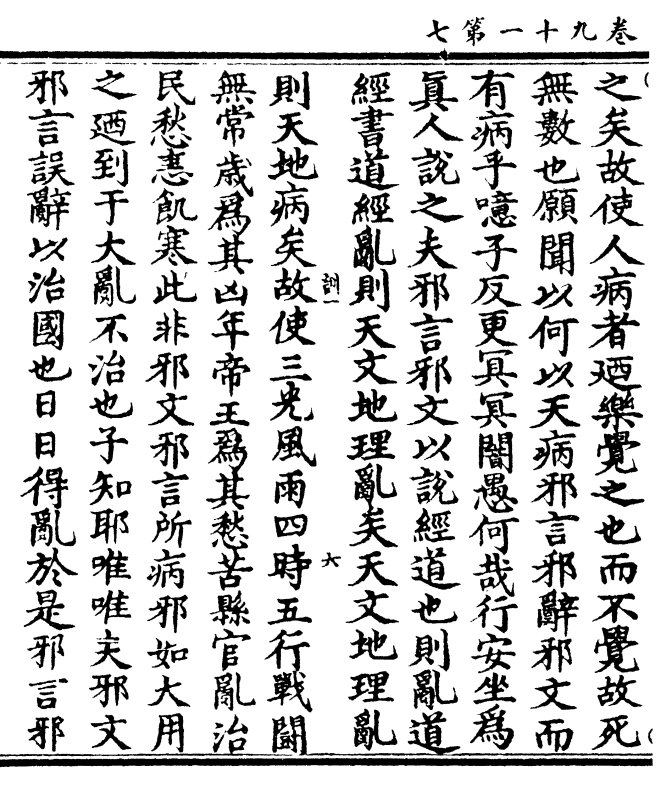 卷九十一第七
之矣故使人病者廼樂覺之也而不覺故死
無數也願聞以何以天病邪言邪辭邪文而
有病乎噫子反更冥冥闇愚何哉行安坐爲
眞人說之夫邪言邪文以說經道也則亂道
經書道經亂則天文地理亂矣天文地理亂
訓一
六
則天地病矣故使三光風雨四時五行戰鬭
無常歲爲其凶年帝王爲其愁苦縣官亂治
民愁恚飢寒此非邪文邪言所病邪如大用
之廼到于大亂不治也子知耶唯唯夫邪文
邪言誤辭以治國也日日得亂於是邪言邪